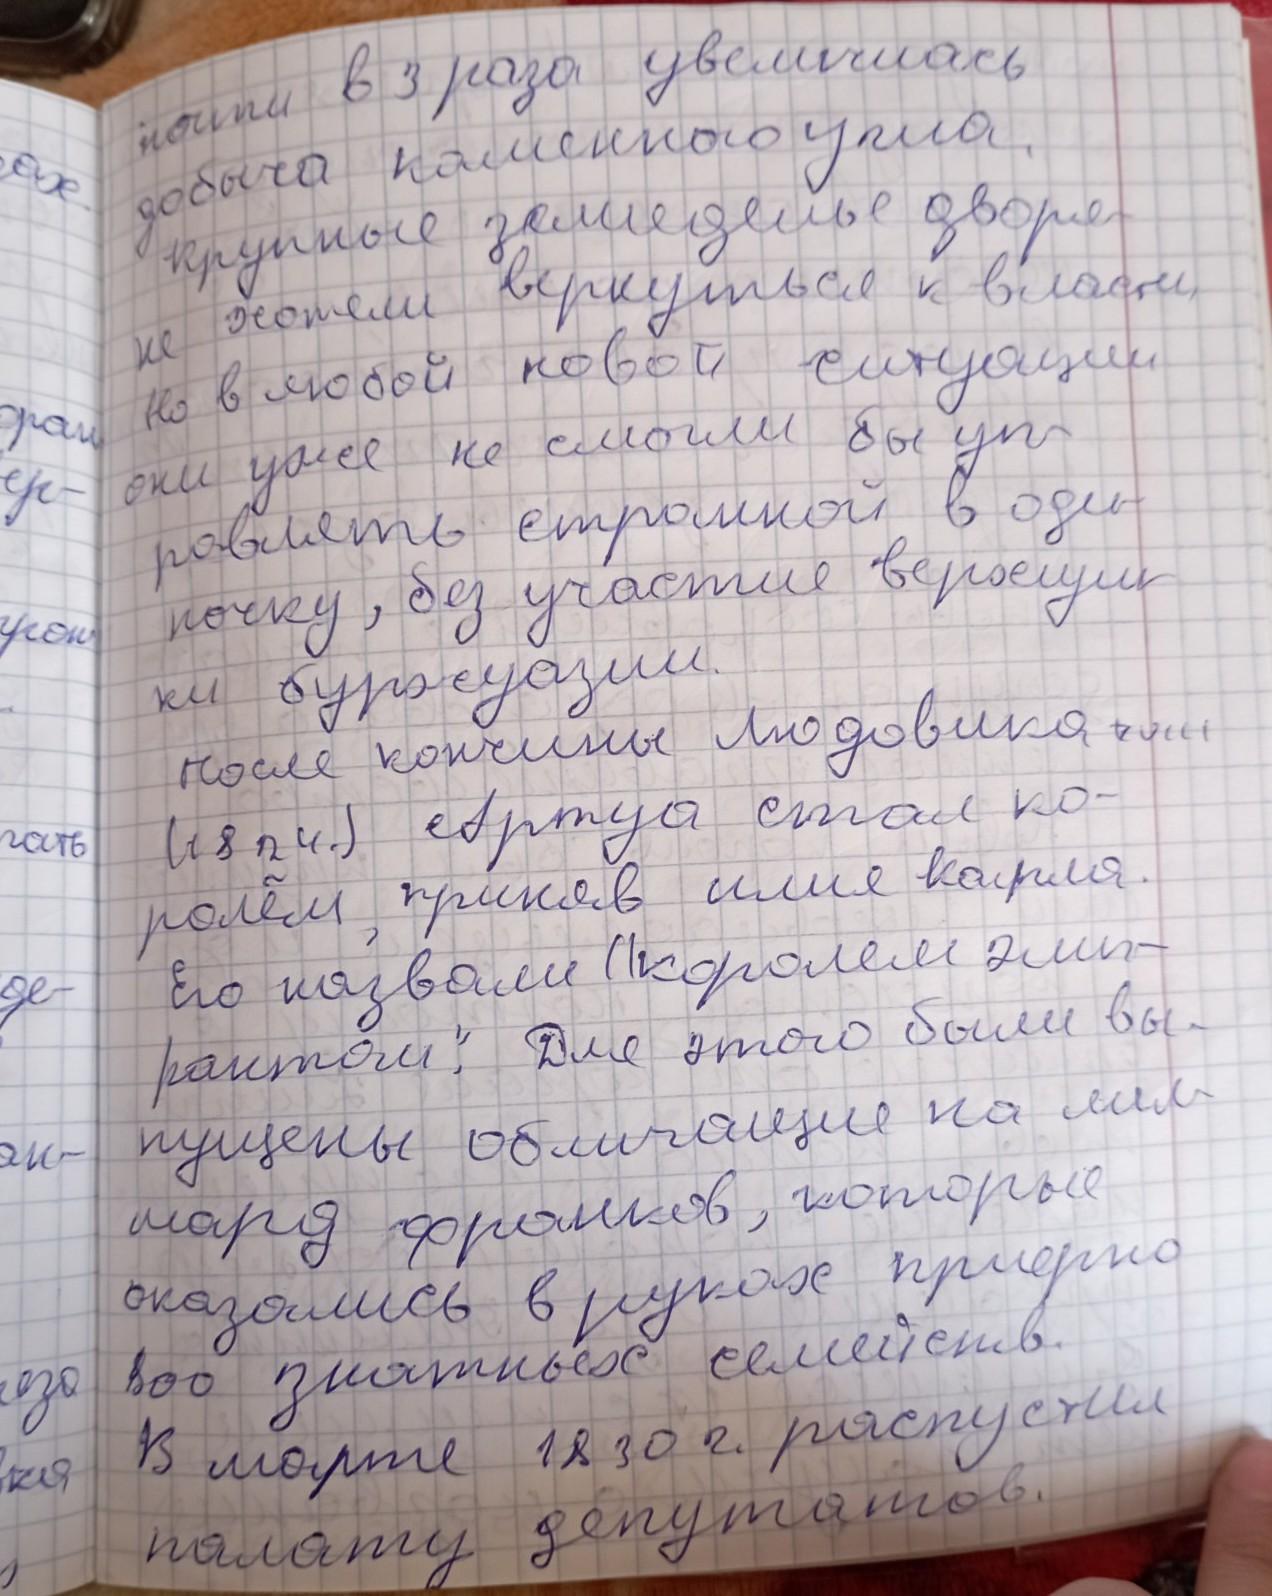 почти в 3 раза увеличилась
добыча каменного угла.
крупные земледелые дворя-
не хотели вернуться к власти,
Но в любой новой ситуации
они уже не смогли бы уп-
равлять страной в оди-
ночку, без участие верхуш-
ки буржуазии.
После кончины Людовика
(1824.) Артуа стал ко-
ролём, приняв имия Карла.
Его назвали "королем эми-
рантом". Для этого были вы-
пущены обличающие на мил-
лиард франков, которые
оказались в руках приерно
знатных семейств.
В марте 1830 г. распустил
палату депутатов.
сах.
гать
де-
ан-